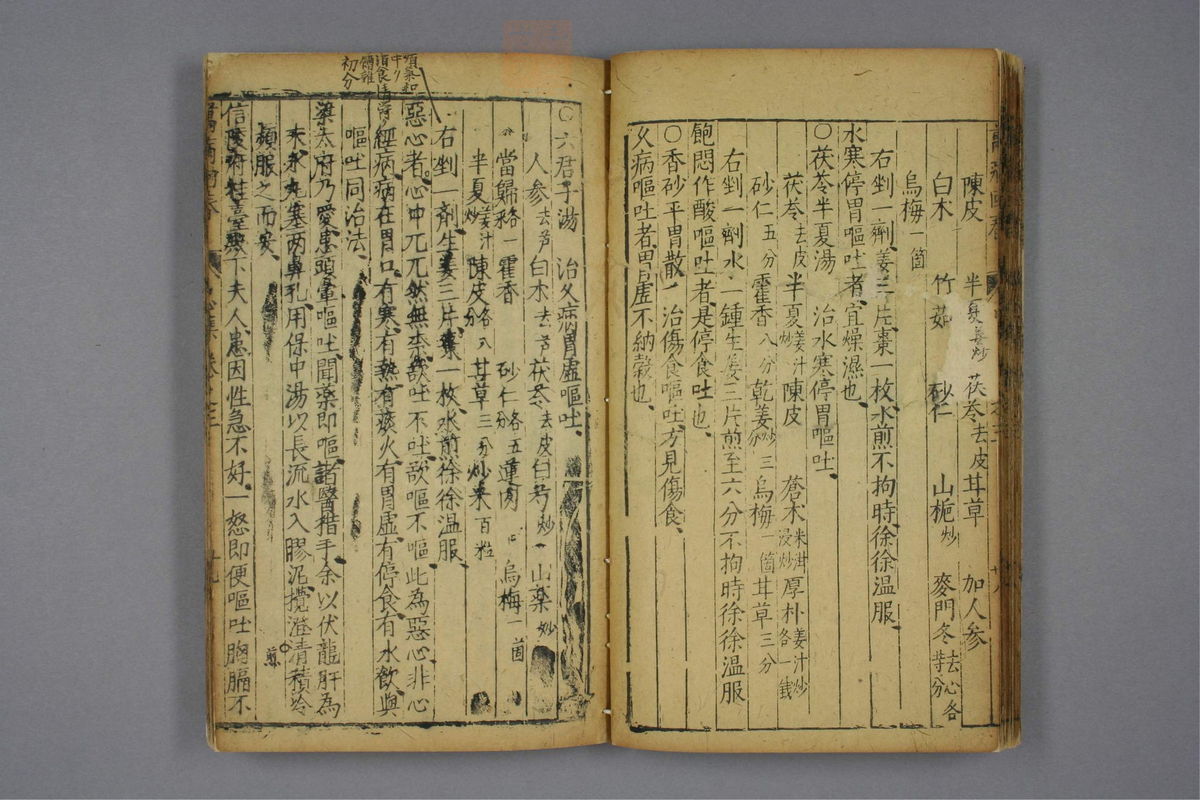 陳皮 半夏姜炒 茯苓去皮 甘草 加人參
白朮 竹茹 砂仁 山梔炒 麥門冬去心各等分
烏梅一箇
右剉一劑姜三片棗一枚水煎不拘時徐徐温服
水寒停胃嘔吐者宜燥濕也
○茯苓半夏湯 治水寒停胃嘔吐
茯苓去皮 半夏姜汁炒 陳皮 蒼朮米泔浸炒 厚朴姜汁炒各一錢
砂仁五分 霍香八分 乾姜炒三分 烏梅一箇 甘草三分
右剉一劑水一鍾生姜三片煎至六分不拘時徐徐温服
飽悶作酸嘔吐者是停食吐也
○香砂平胃散 治傷食嘔吐方見傷食
久病嘔吐者胃虛不納穀也
○六君子湯 治久病胃虛嘔吐
人參去芦 白朮去芦 茯苓去皮 白芍炒 山藥炒
當歸各一 霍香 砂仁各五分 蓮肉 烏梅一箇
半夏姜汁炒 陳皮各八分 甘草三分 炒米百粒
右剉一劑生姜三片棗一枚水煎徐徐温服
惡心者心中兀兀然無柰欲吐不吐欲嘔不嘔此為惡心非心
經病病在胃口有寒有熱有痰火有胃虛有停食有水飲與
嘔吐同治法
梁太府乃愛患頭暈嘔吐聞藥即嘔諸醫措手余以伏龍肝為
末水丸塞兩鼻孔用保中湯以長流水入膠泥攪澄清積冷
煎
頻服之而安
信陵府桂臺殿下夫人患因性急不好一怒即便嘔吐胸膈不
初分